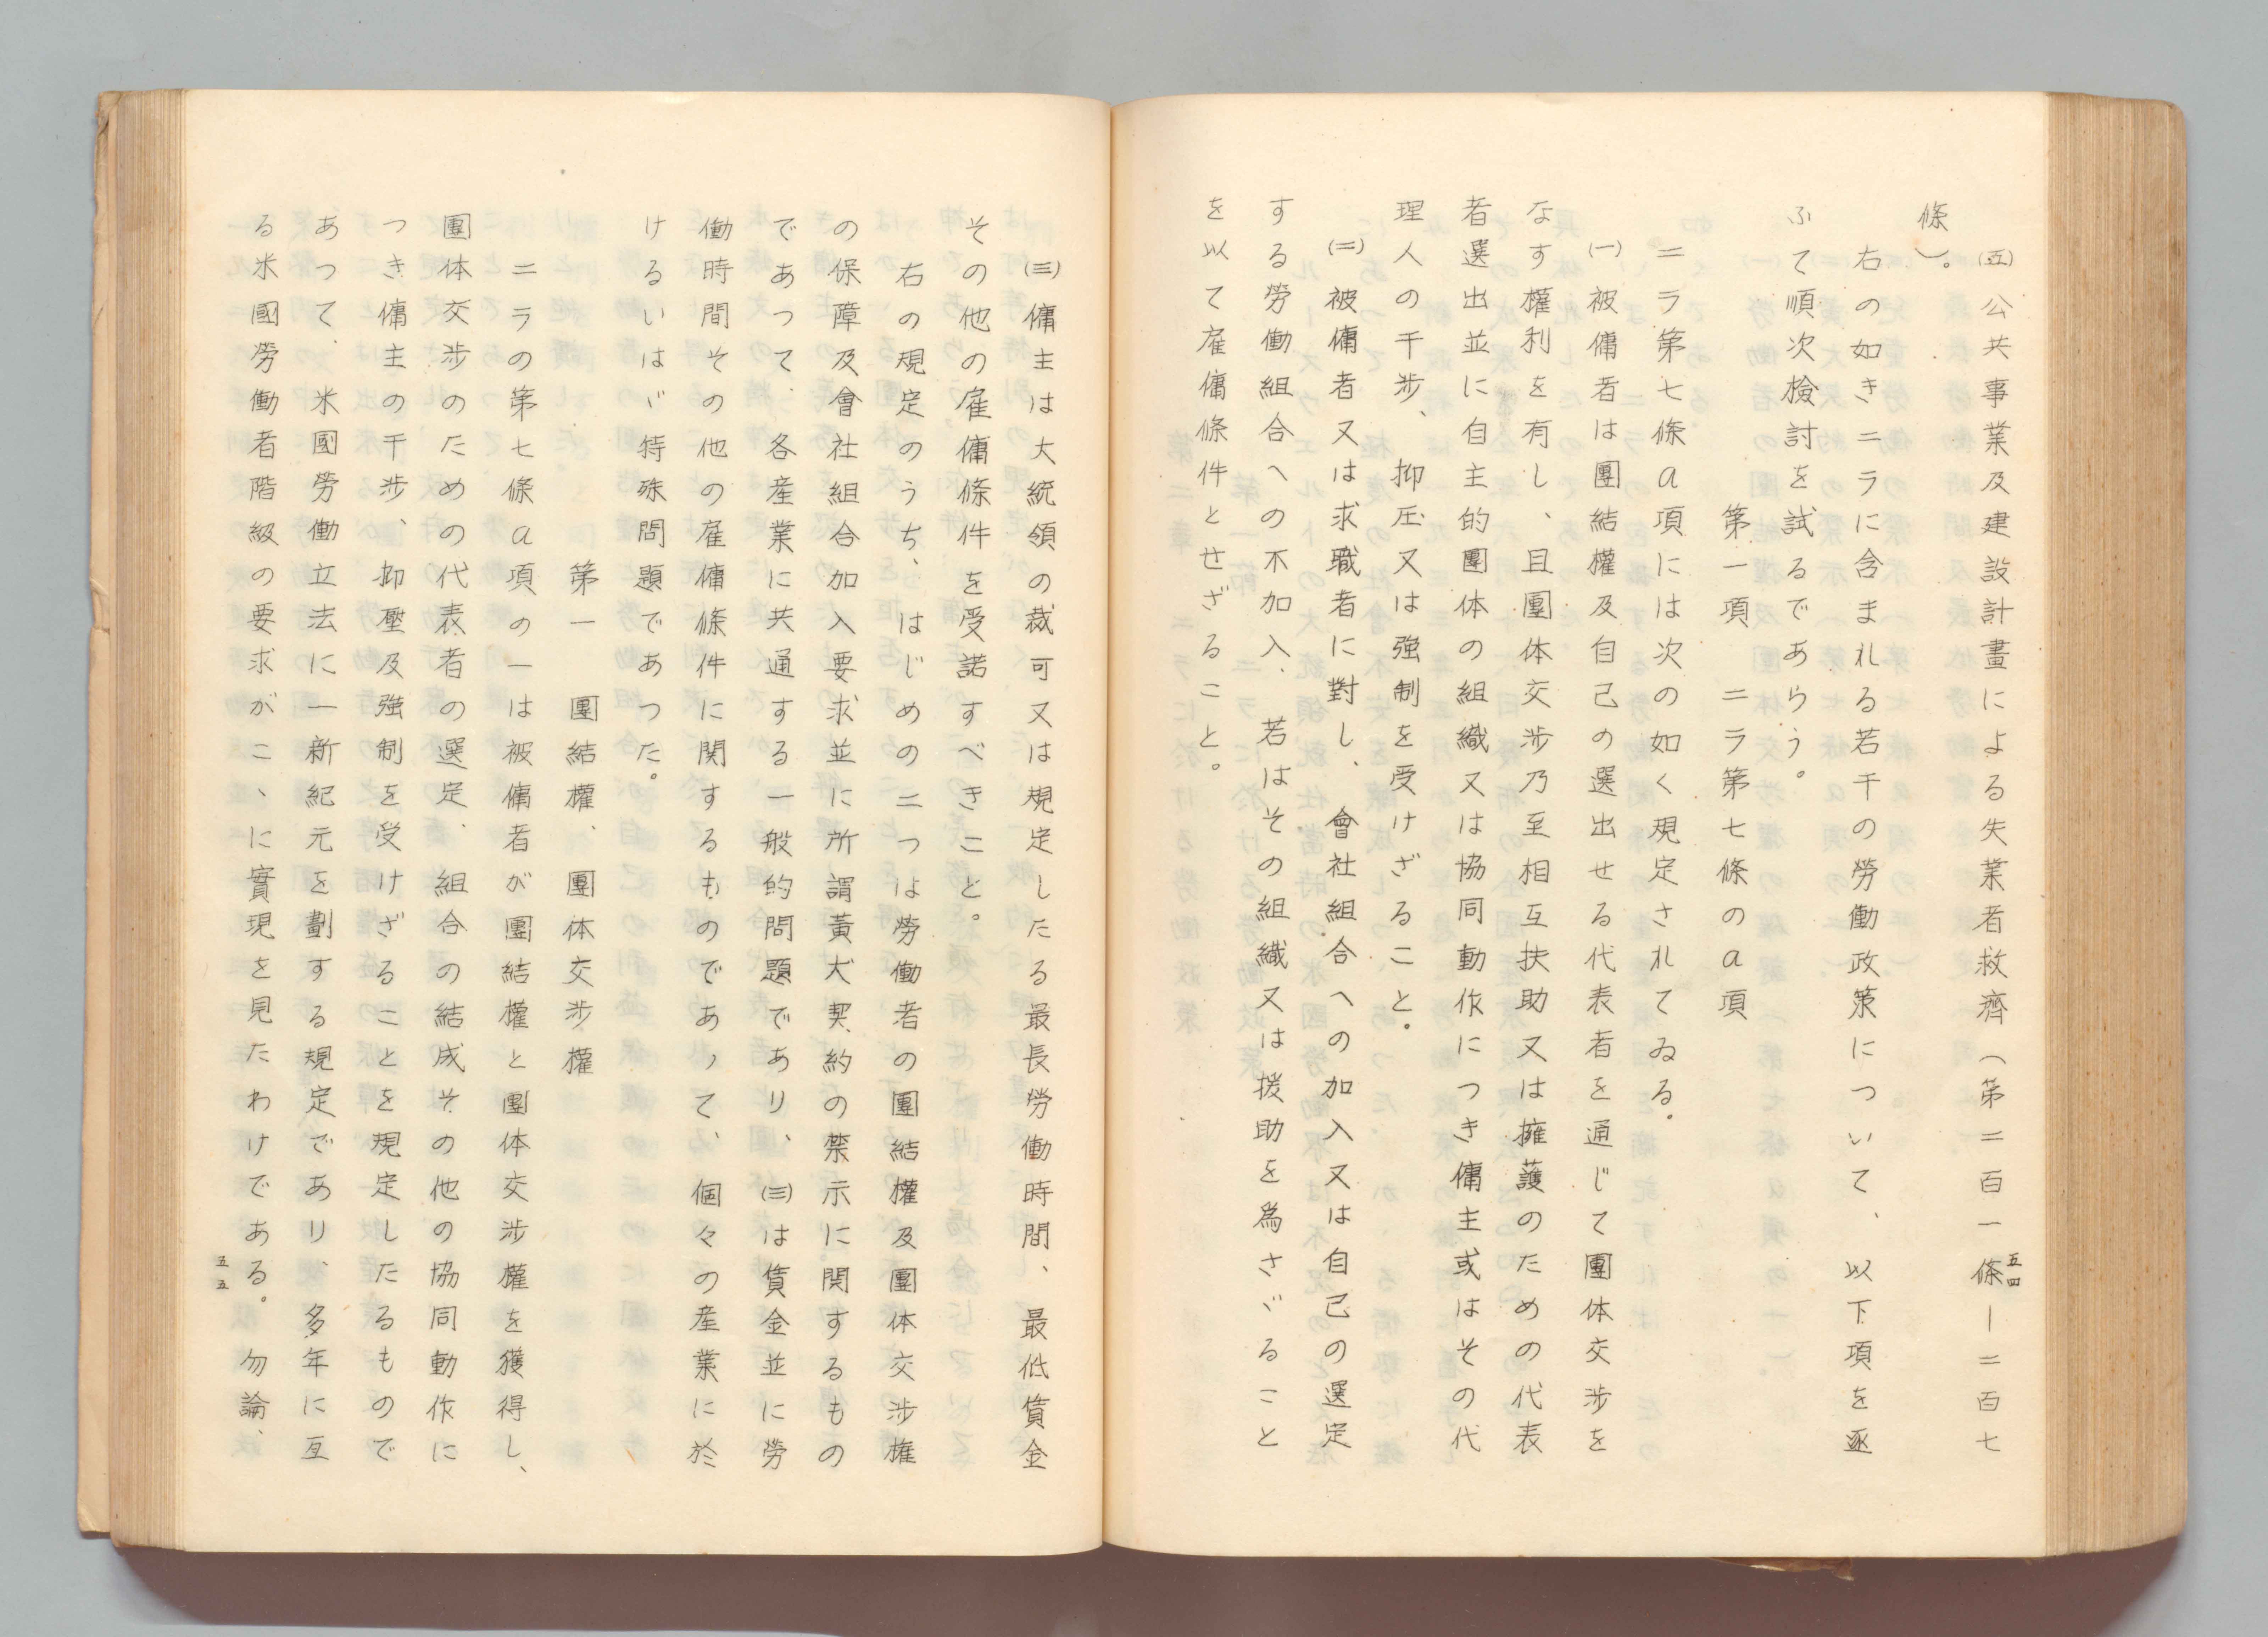 ㈤公共事業及建設計畫による失業者救濟（第二百一條―二百七
條）。
右の如きニラに含まれる若干の勞働政策について、以下項を逐
ふて順次檢討を試るであらう。
第一項　ニラ第七條のa項
ニラ第七條a項には次の如く規定されてゐる。
㈠被傭者は團結權及自己の選出せる代表者を通じて團体交涉を
なす權利を有し、且團体交涉乃至相互扶助又は擁護のための代表
者選出並に自主的團体の組織又は協同動作につき傭主或はその代
理人の干涉、抑圧又は強制を受けざること。
㈡被傭者又は求職者に對し、會社組合への加入又は自己の選定
する勞働組合への不加入、若はその組織又は援助を爲さゞること
を以て雇傭條件とせざること。
五四
㈢傭主は大統領の裁可又は規定したる最長勞働時間、最低賃金
その他の雇傭條件を受諾すべきこと。
右の規定のうち、はじめの二つは勞働者の團結權及團体交涉権
の保障及會社組合加入要求並に所謂黃犬契約の禁示に関するもの
であって、各産業に共通する一般的問題であり、㈢は賃金並に勞
働時間その他の雇傭條件に関するものであって、個々の産業に於
けるいはゞ特殊問題であつた。
第一　團結權、團体交涉權
ニラの第七條a項の一は被傭者が團結權と團体交涉權を獲得し、
團体交涉のための代表者の選定、組合の結成その他の協同動作に
つき傭主の干涉、抑壓及強制を受けざることを規定したるもので
あつて、米國勞働立法に一新紀元を劃する規定であり、多年に亙
る米國勞働者階級の要求がこゝに實現を見たわけである。勿論、
五五